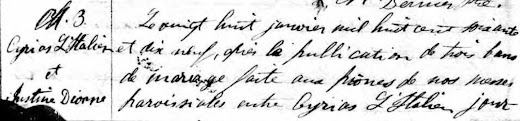 M. 3.
Cyrias L'Italien
et
Justine Dionne
Le vingt huit janvier mil huit cent soixante
et dix neuf, après la publication de trois bans
de mariage faite aux prônes de nos messes
paroissiales entre Cyrias L'Italien, jour-